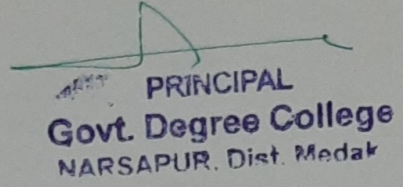 PRINCIPAL
Govt. Degree College
NARSAPUR. Dist. Medak